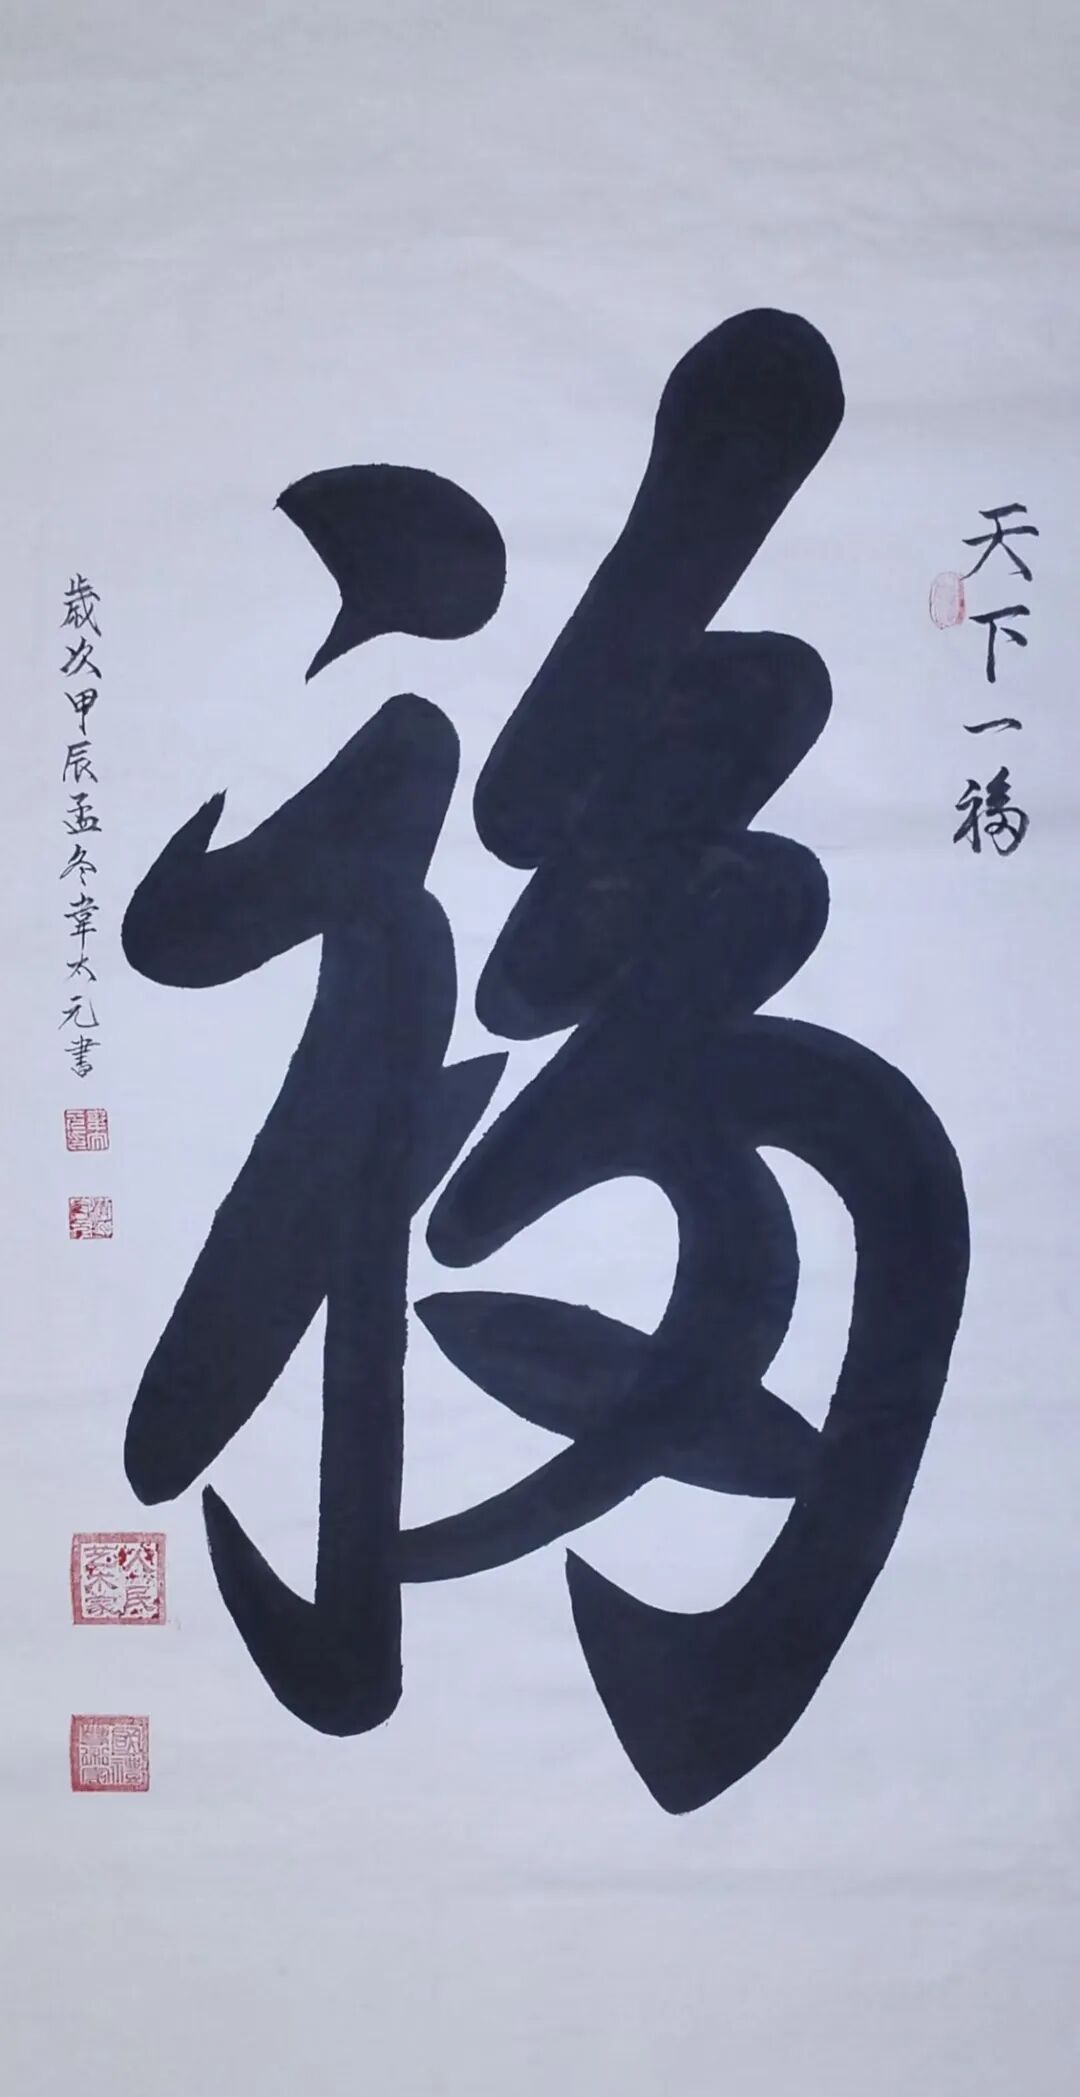 天下一福
福
歲次甲辰孟冬韋太元書
人民
艺术家